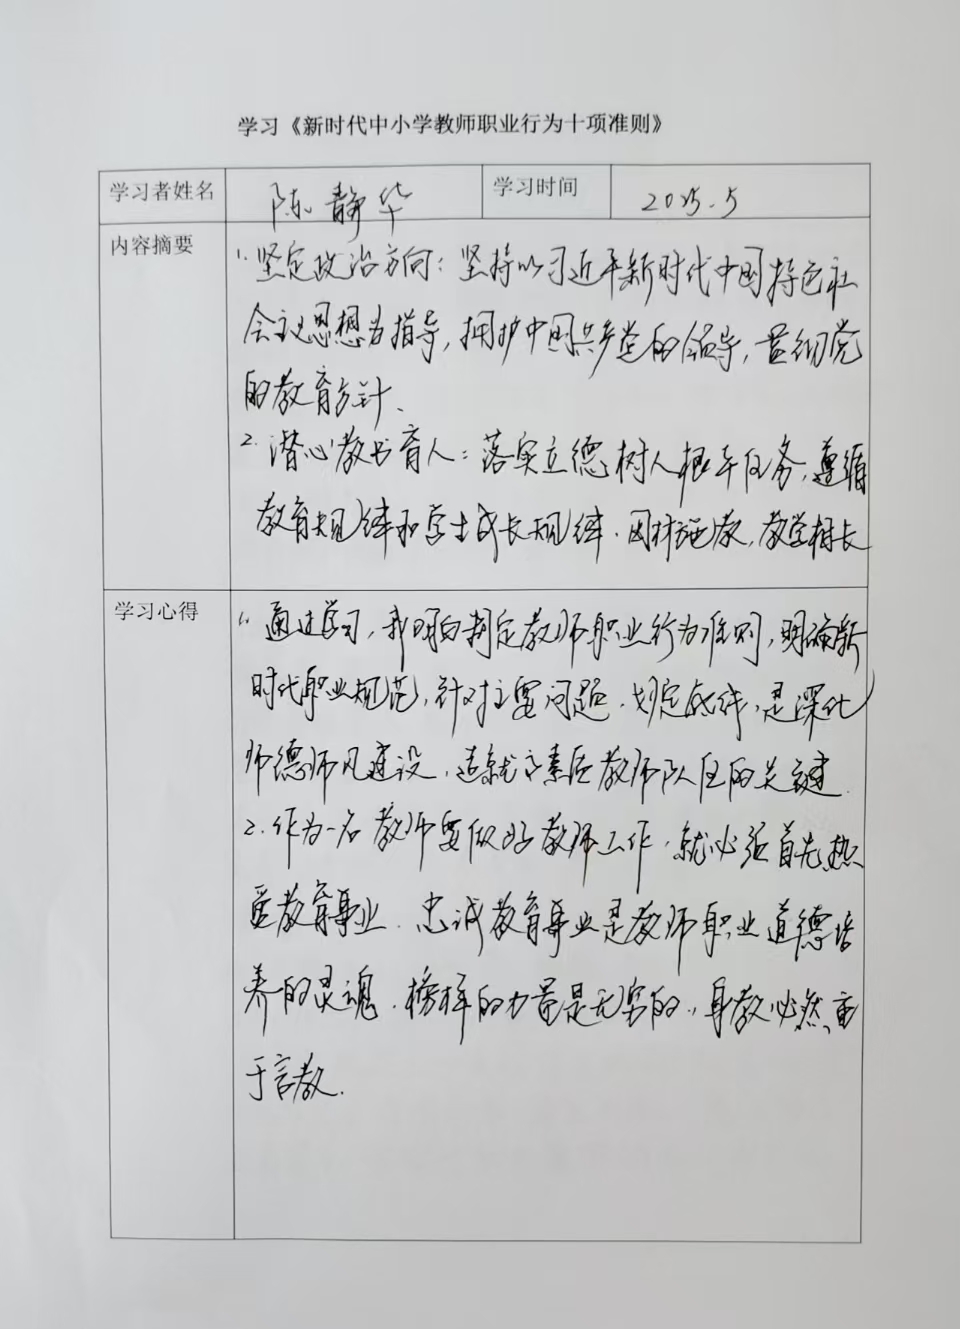 学习《新时代中小学教师职业行为十项准则》
学习者姓名 陈静华 学习时间 2025.5
内容摘要
1. 坚定政治方向：坚持以习近平新时代中国特色社
会主义思想为指导，拥护中国共产党的领导，贯彻党
的教育方针、
2. 潜心教书育人：落实立德树人根本任务，遵循
教育规律和学生成长规律．因材施教，教学相长
学习心得
1. 通过学习，我明白制定教师职业行为准则，明确新
时代职业规范，针对主要问题．划定底线，是深化
师德师风建设．造就高素质教师队伍的关键．
2. 作为一名教师要做好教师工作．就必须首先热
爱教育事业．忠诚教育事业是教师职业道德培
养的灵魂．榜样的力量是无穷的．，身教必然重
于言教．